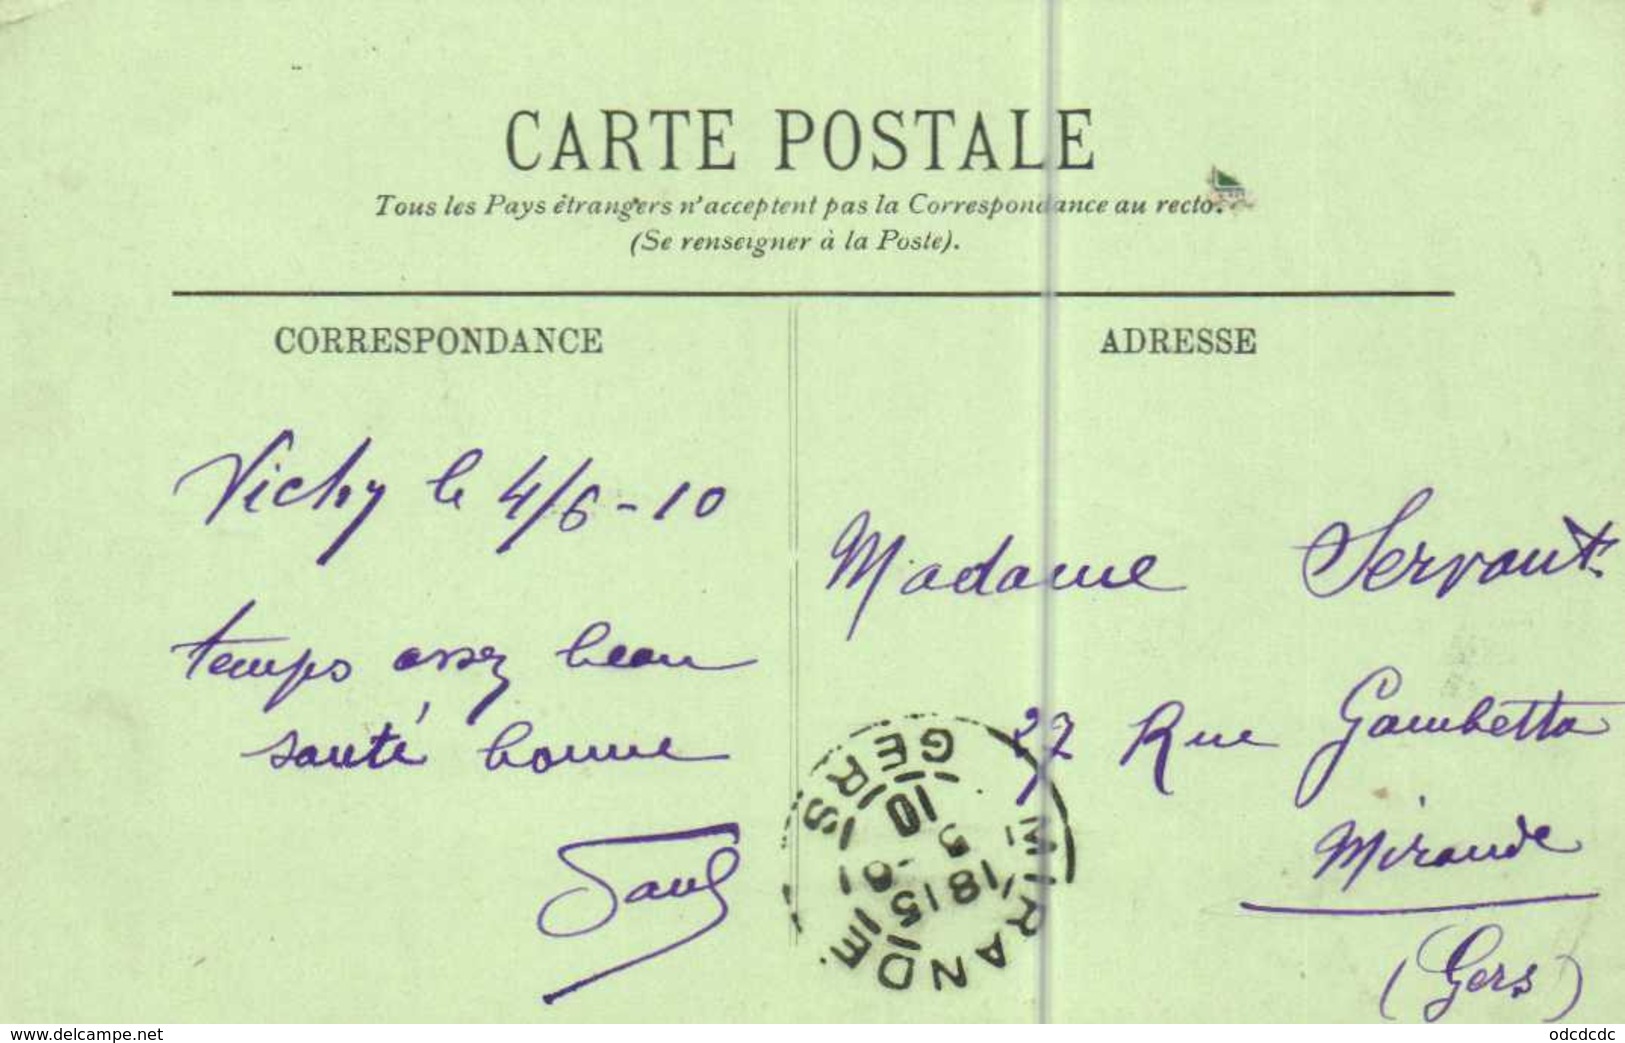 CARTE POSTALE
Tous les Pays étrangers n'acceptent pas la Correspondance au recto.
(Se renseigner à la Poste).
CORRESPONDANCE
ADRESSE
Vichy le 4/6-10
temps assez beau
santé bonne
Paul
Madame Servant
27 Rue Gambetta
Mirande
(Gers)
MIRANDE
GERS
1815
5 - 6
10
www.delcampe.net
odcdcdc